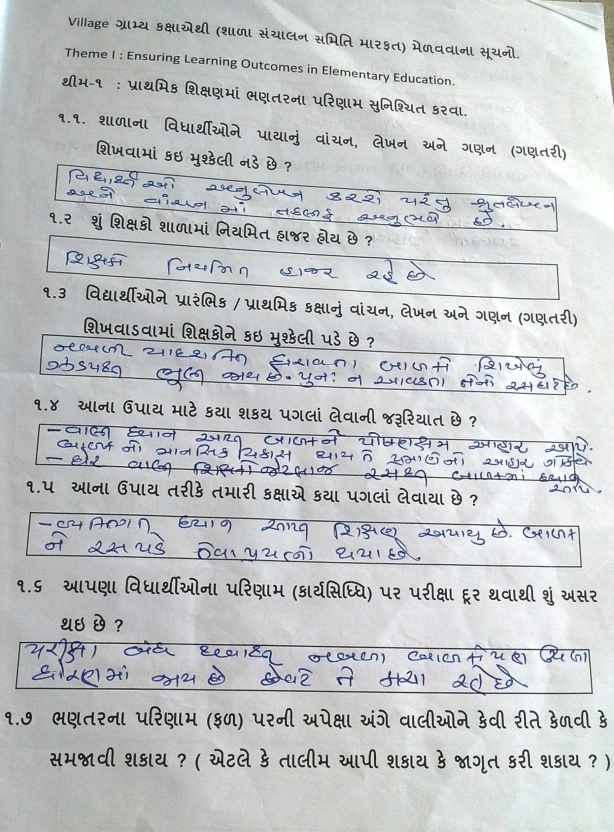 Village ગ્રામ્ય કક્ષાએથી (શાળા સંચાલન સમિતિ મારફત) મેળવવાના સૂચનો.
Theme I : Ensuring Learning Outcomes in Elementary Education.
થીમ-૧ : પ્રાથમિક શિક્ષણમાં ભણતરના પરિણામ સુનિશ્ચિત કરવા.
૧.૧. શાળાના વિધાર્થીઓને પાયાનું વાંચન, લેખન અને ગણન (ગણતરી)
શિખવામાં કઇ મુશ્કેલી નડે છે ?
વિદ્યાર્થીઓ અનુલેખન કરશે પરંતુ શ્રુતલેખન
અને વાંચન માં તકલીફ અનુભવે છે.
૧.૨ શું શિક્ષકો શાળામાં નિયમિત હાજર હોય છે ?
શિક્ષકો નિયમિત હાજર રહે છે
૧.૩ વિદ્યાર્થીઓને પ્રારંભિક / પ્રાથમિક કક્ષાનું વાંચન, લેખન અને ગણન (ગણતરી)
શિખવાડવામાં શિક્ષકોને કઇ મુશ્કેલી પડે છે ?
નબળી યાદશક્તિ ધરાવતા બાળકો શિખેલુ
ઝડપથી ભૂલી જાય છે. પુનઃ ન આવડતા તેનો રસ ઘટે છે.
૧.૪ આના ઉપાય માટે કયા શકય પગલાં લેવાની જરૂરિયાત છે ?
- વાલી ધ્યાન આપી બાળકને પોષણક્ષમ આહાર આપે.
બાળક નો માનસિક વિકાસ થાય તે આહાર
- ઘરે વાલી શિક્ષકો જેટલાજ રસથી બાળકમાં ધ્યાન
આપે.
૧.૫ આના ઉપાય તરીકે તમારી કક્ષાએ કયા પગલાં લેવાયા છે ?
- વ્યક્તિગત ધ્યાન આપી શિક્ષણ અપાયુ છે. બાળક
ને રસ પડે તેવા પ્રયત્નો થયા છે.
૧.૬ આપણા વિધાર્થીઓના પરિણામ (કાર્યસિધ્ધિ) પર પરીક્ષા દૂર થવાથી શું અસર
થઇ છે ?
પરીક્ષા બંધ થવાથી નબળા બાળકો પણ ઉપલા
ધોરણમાં જાય છે છેવટે તે કાચા રહે છે
૧.૭ ભણતરના પરિણામ (ફળ) પરની અપેક્ષા અંગે વાલીઓને કેવી રીતે કેળવી કે
સમજાવી શકાય ? ( એટલે કે તાલીમ આપી શકાય કે જાગૃત કરી શકાય ? )